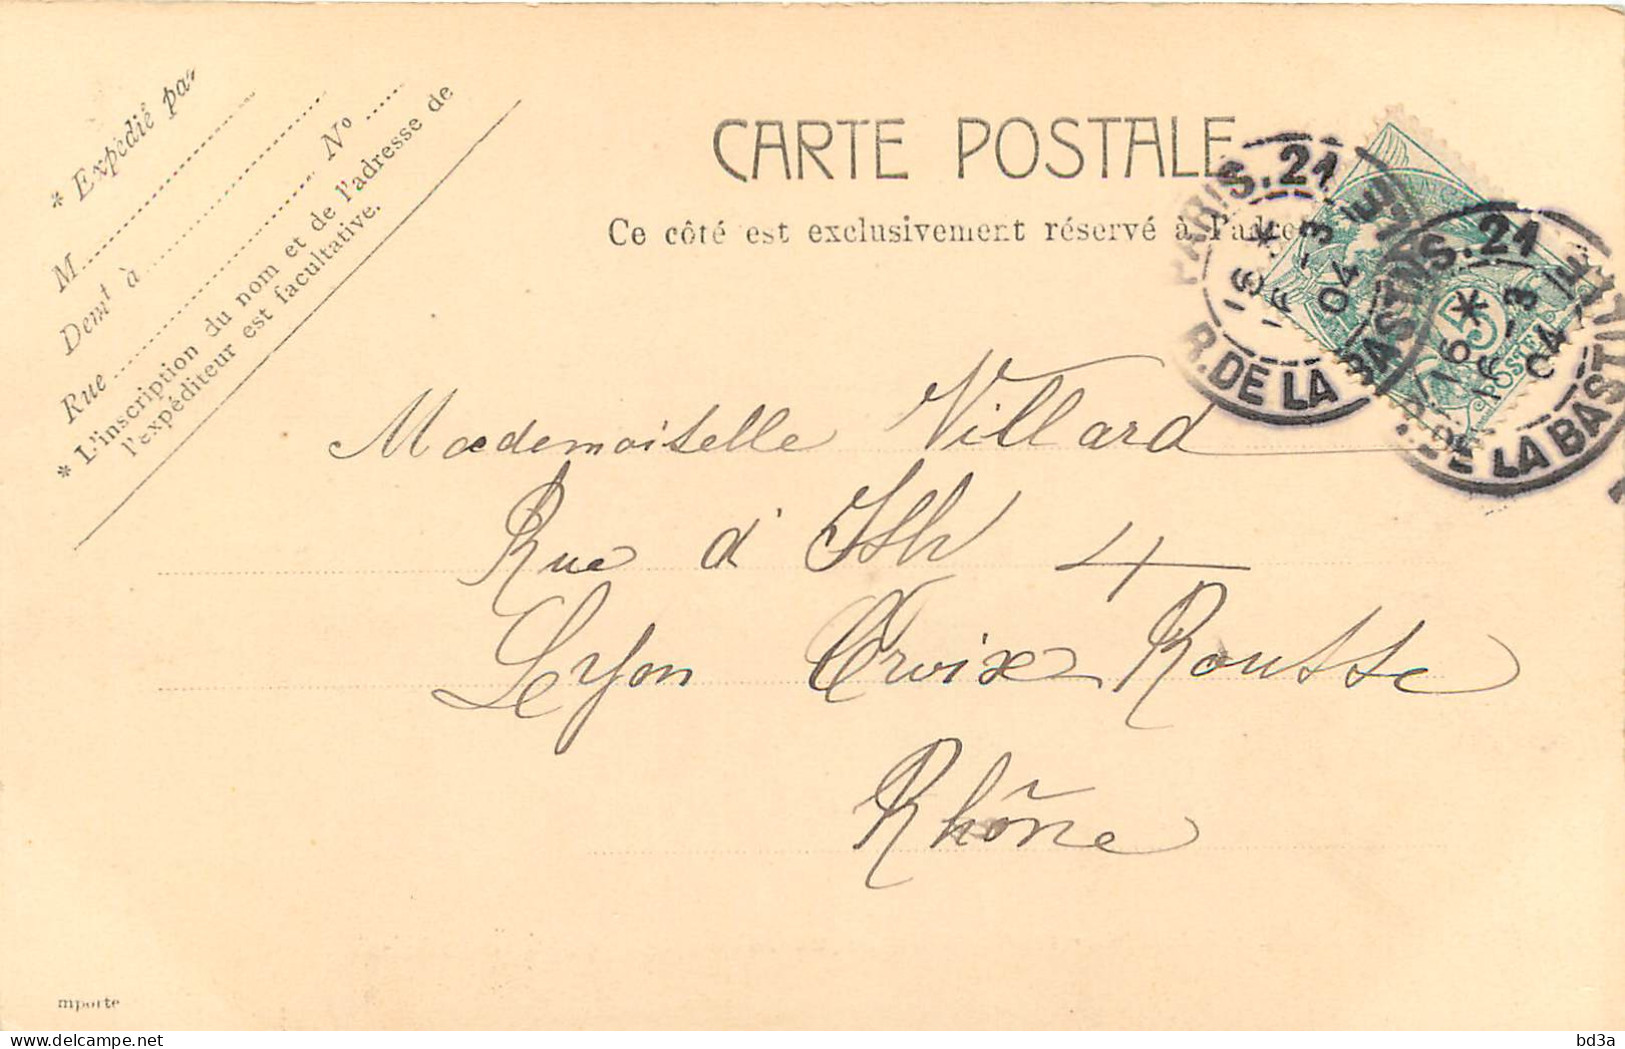 * Expédié par
M
Demt à
Rue Nº
* L'inscription du nom et de l'adresse de
l'expéditeur est facultative.
CARTE POSTALE
Ce côté est exclusivement réservé à l'adre
PARIS.21
16 * 16 -3 04
R. DE LA BASTILLE
PARIS.21
16 * 16 -3 04
R. DE LA BASTILLE
5
POSTE
Mademoiselle Villard
Rue d' 4
Lyon Croix Rousse
Rhône
mporte
delcampe.net
bd3a